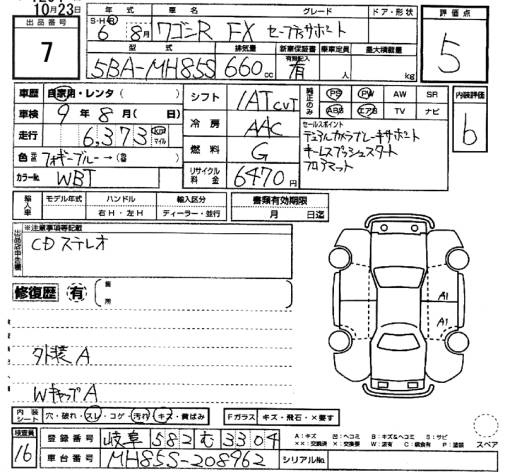 10月23日
出品番号
7
年式 車名 グレード ドア・形状
S・H・R 6年 8月 ワゴンR FX セーフティサポート
型式 排気量 新車保証書 乗車定員 最大積載量
5BA-MH85S 660cc 有 人 kg
評価点
5
車歴 自家用・レンタ( )
車検 9年 8月( 日)
走行 6,373 km マイル
色 フォギーブルー→(替 )
カラーNo. WBT
シフト IAT CVT
冷房 AAC
燃料 G
リサイクル料金 6470円
純正のみ PS PW AW SR
ABS エアB TV ナビ
セールスポイント
デュアルカメラブレーキサポート
キーレスプッシュスタート
フロアマット
内装評価
b
輸入車 モデル年式 ハンドル 輸入区分
年 右H・左H ディーラー・並行
書類有効期限
月 日迄
※注意事項等記載
出品店申告欄
CDステレオ
修復歴 有 箇所
A1
A1
外装A
WキャップA
内装シート 穴・破れ・スレ・コゲ・汚れ・キズ・黄ばみ
Fガラス キズ・飛石・×要す
検査員
16
登録番号 岐阜 582 む 3304
車台番号 MH85S-208962 シリアルNo.
A:キズ U:ヘコミ B:キズ&ヘコミ S:サビ
××:交換済 ×:交換要 W:波有 C:腐食有 P:塗装
スペア